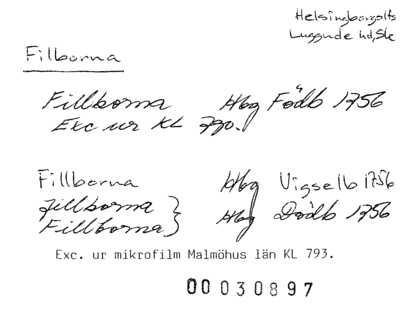 Helsingborgsltfs
Luggude hd, Sk
Filborna
Fillborna Hbg Födb 1756
Exc ur KL 790.
Fillborna Hbg Vigselb 1756
Jillborna }
Fillborna } Hbg Dödb 1756
Exc. ur mikrofilm Malmöhus län KL 793.
00 030897